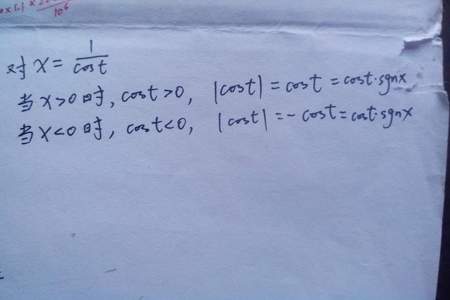 对 x = 1/cost
当 x>0时, cost>0, |cost| = cost = cost·sgnx
当 x<0时, cost<0, |cost| = - cost = cost·sgnx